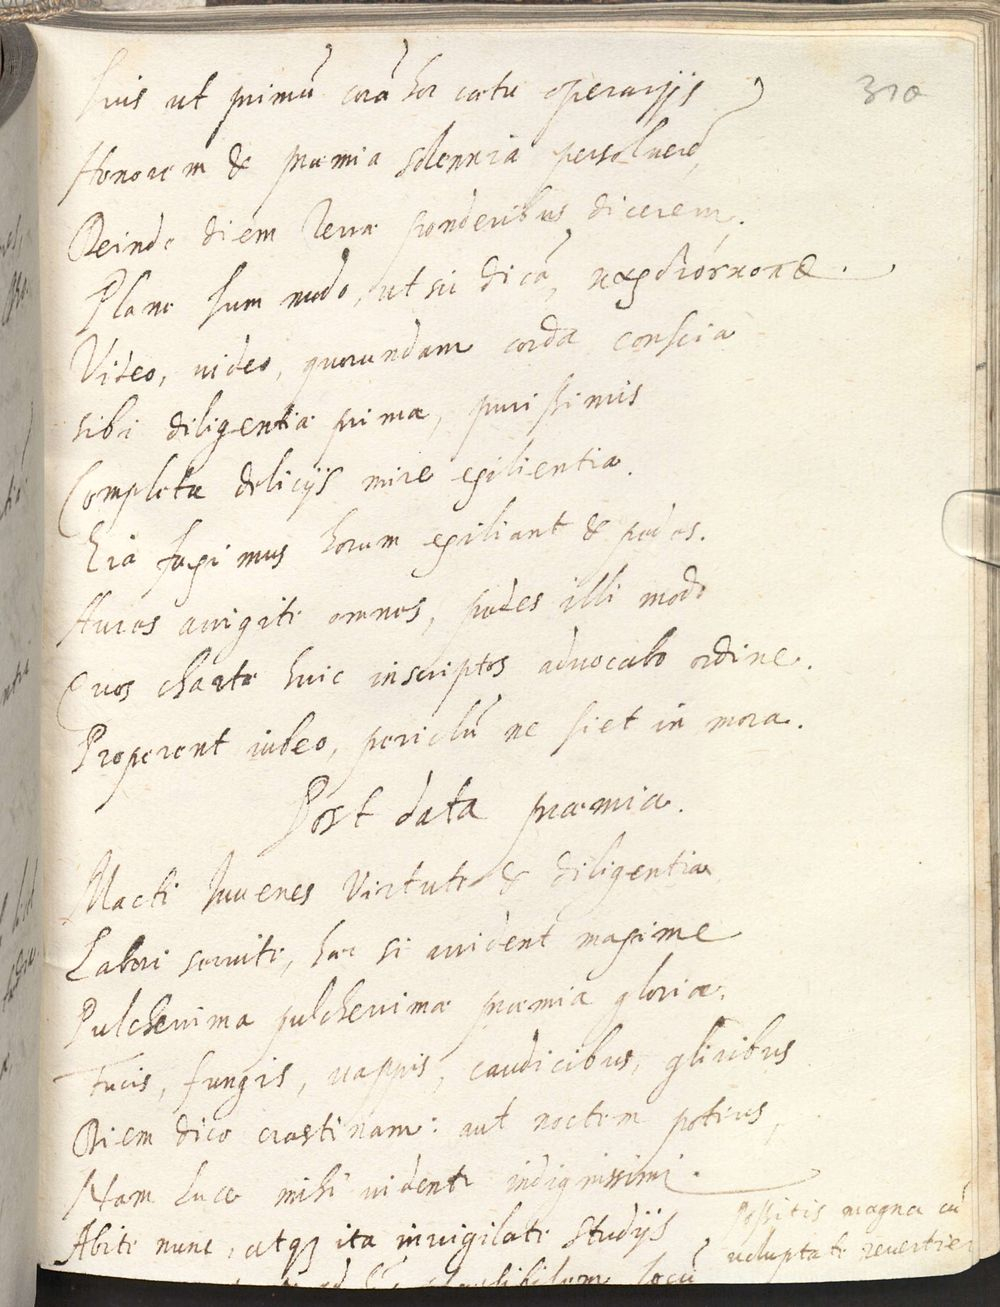 310
suis ut primũ corã hoc cœtu operarijs
Honorem & præmia solennia persoluerẽ,
Deinde diem Terræ ponderibus dicerem.
Plane sum modo, ut sic dicã,
Video, uideo, quorundam corda conscia
sibi diligentiæ primæ, purissimis
Completa delicijs mire exilientia.
Eia faximus horum exiliant & pedes.
Aures arrigite omnes, pedes illi modo
Quos chartæ huic inscriptos aduocabo ordine.
Properent iubeo, periclũ ne siet in mora.
Post data præmia.
Macti Iuuenes Virtute & diligentia
Labori seruite, hæc si arrident maxime
Pulcherrima pulcherrimæ præmia gloriæ.
Fucis, fungis, uappis, caudicibus, gliribus
Diem dico crastinam: aut noctem potius,
Nam luce mihi uidentur indignissimi.
Abite nunc, atq; ita inuigilate studijs
possitis magna cũ
uoluptate reuertier
locũ